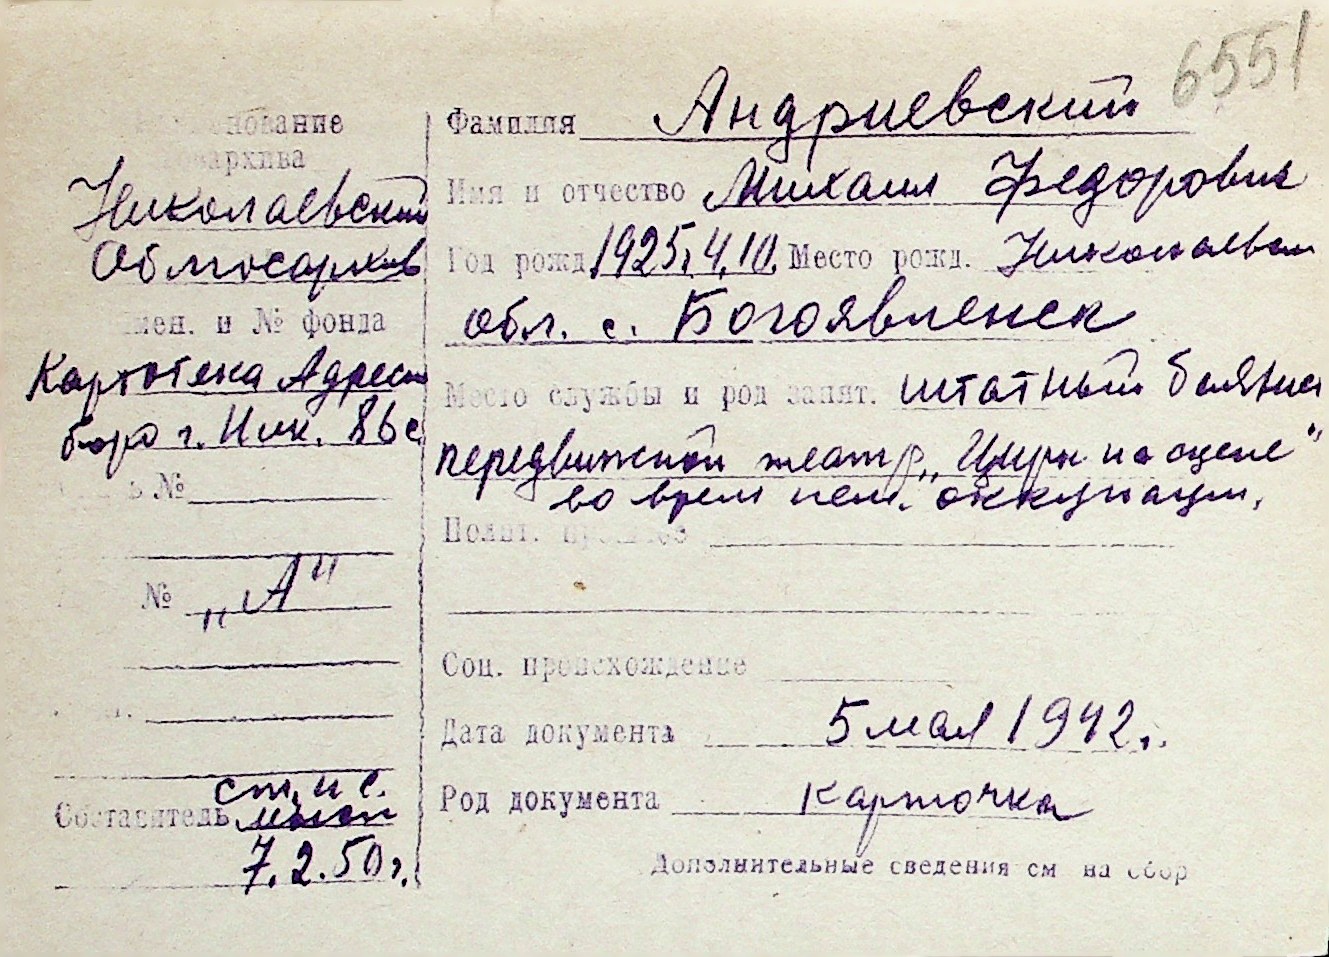 6551
Наименование
Госархива
Николаевский
Облгосархив
Наимен. и № фонда
Картотека Адресн
бюро г. Ник. 86с
Опись №
№ „А“
Составитель ст. н с.
7.2.50 г.
Фамилия Андриевский
Имя и отчество Михаил Федорович
Год рожд 1925.4.10. Место рожд. Николаевск
обл. с. Богоявленск
Место службы и род занят. штатный баянист
передвижной театр „Цирк на сцене“
во время нем. оккупации.
Полит.
Соц. происхождение
Дата документа 5 мая 1942г.
Род документа карточка
Дополнительные сведения см на обор